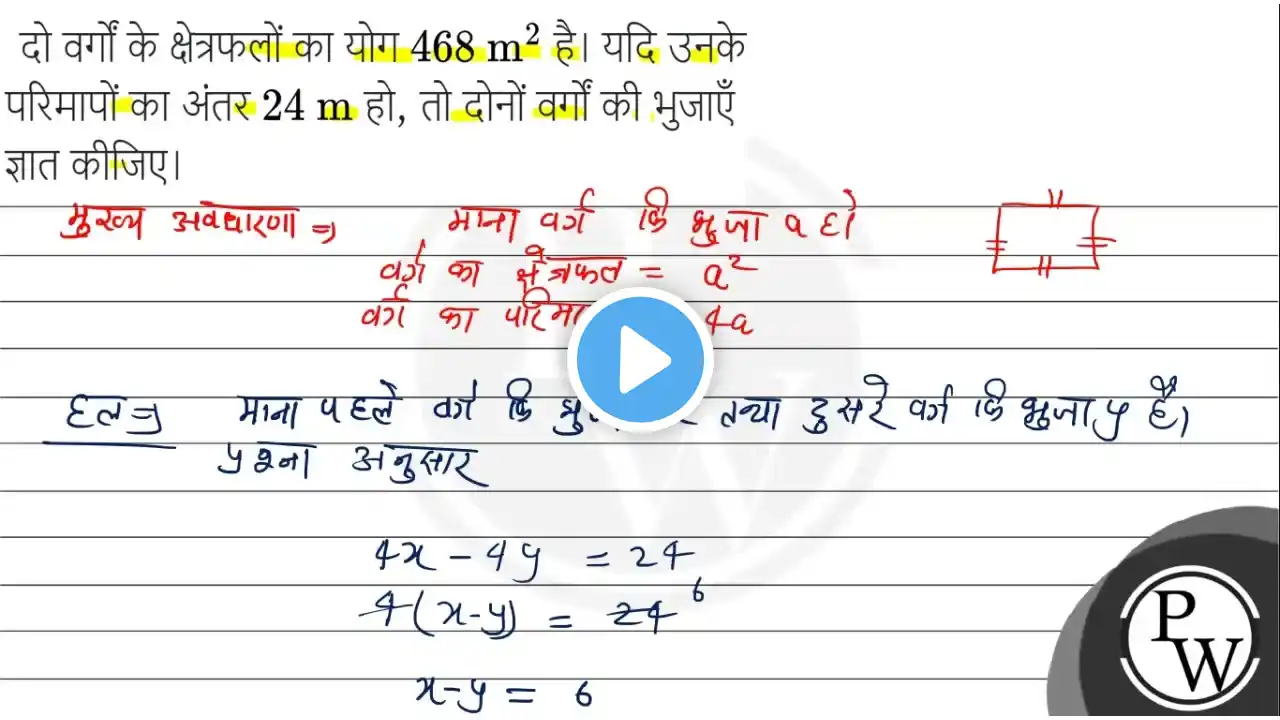 दो वर्गों के क्षेत्रफलों का योग 468 m² है। यदि उनके
परिमापों का अंतर 24 m हो, तो दोनों वर्गों की भुजाएँ
ज्ञात कीजिए।
मुख्य अवधारणा ⇒ माना वर्ग कि भुजा a हो
वर्ग का क्षेत्रफल = a²
वर्ग का 4a
हल ⇒ माना पहले वर्ग कि तथा दुसरे वर्ग कि भुजा y है।
प्रश्ना अनुसार
4x - 4y = 24
4(x-y) = 24 6
x-y = 6
PW